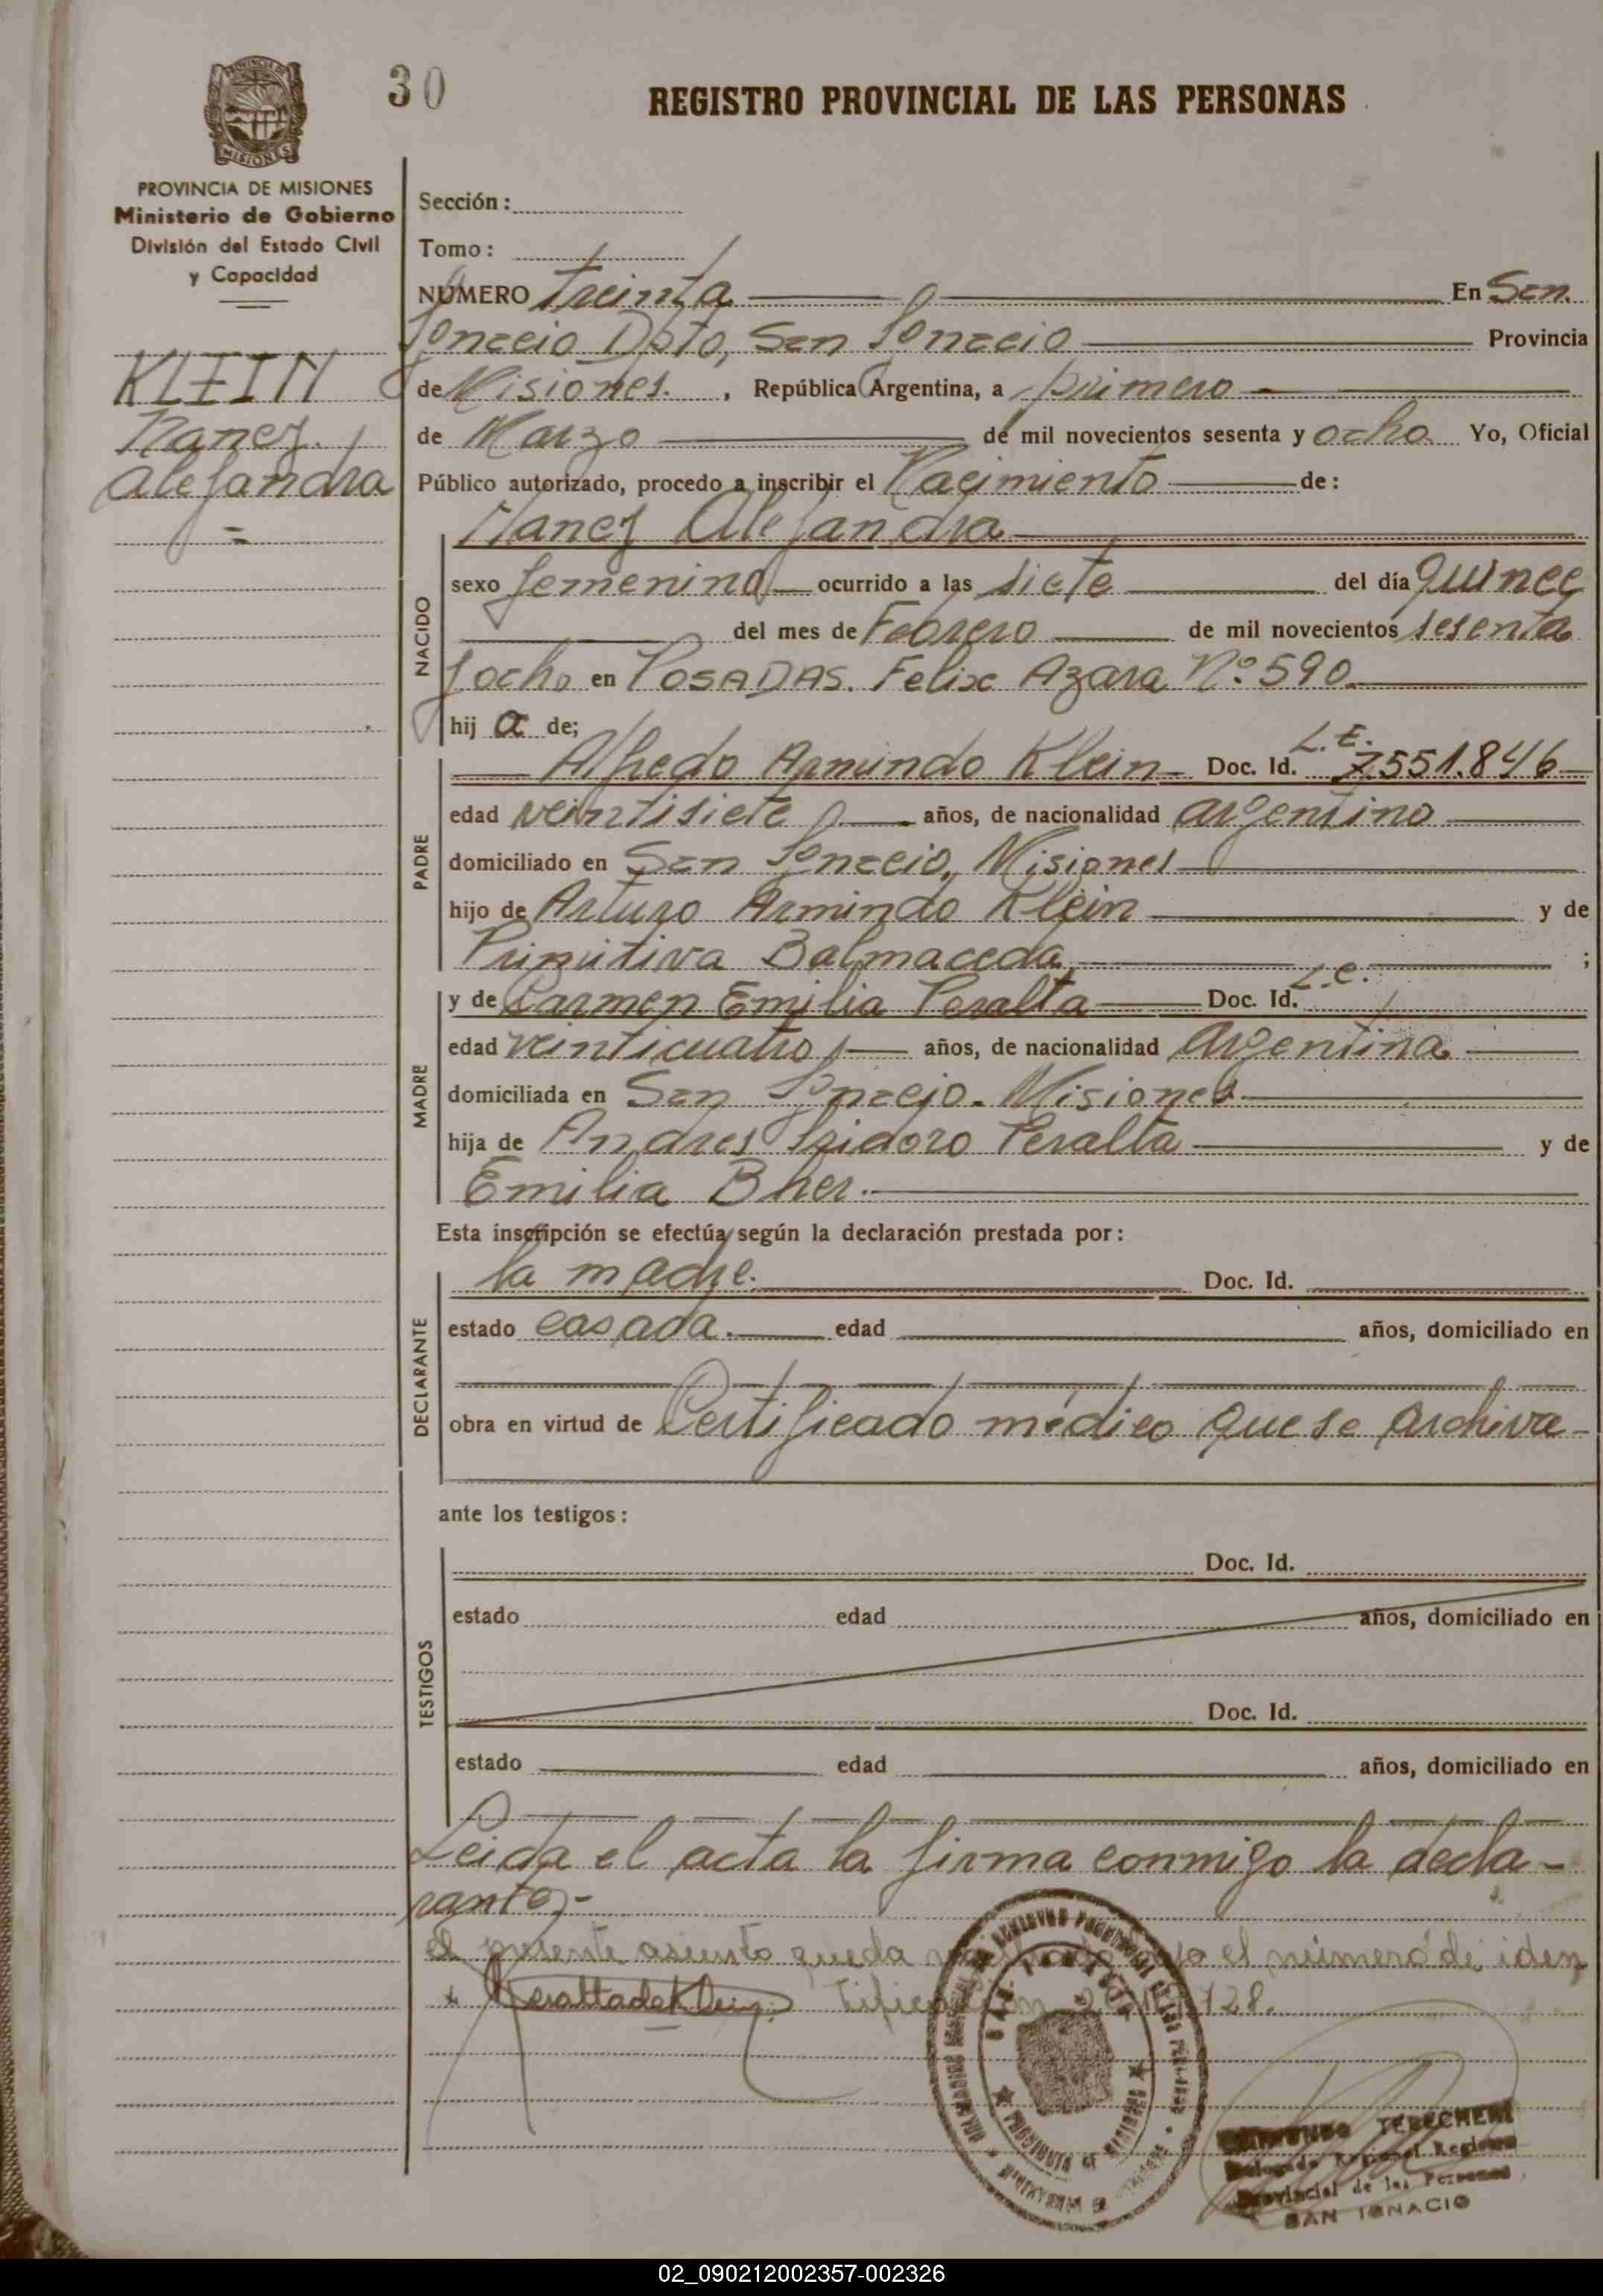 30
REGISTRO PROVINCIAL DE LAS PERSONAS
MISIONES
PROVINCIA DE MISIONES
Ministerio de Gobierno
División del Estado Civil
y Capacidad
KLEIN
Nancy
Alejandra
Sección:
Tomo:
NUMERO treinta En San
Ignacio Dpto, San Ignacio Provincia
de Misiones. , República Argentina, a primero
de Marzo de mil novecientos sesenta y ocho Yo, Oficial
Público autorizado, procedo a inscribir el Nacimiento de:
Nancy Alejandra
NACIDO
sexo femenino ocurrido a las siete del día quince
del mes de Febrero de mil novecientos sesenta
y ocho en POSADAS. Felix Azara Nº 590
hij a de;
PADRE
Alfredo Armindo Klein Doc. Id. L.E. 7.551.846
edad veintisiete años, de nacionalidad argentino
domiciliado en San Ignacio, Misiones
hijo de Arturo Armindo Klein y de
Primitiva Balmaceda ;
MADRE
y de Carmen Emilia Peralta Doc. Id. L.C.
edad veinticuatro años, de nacionalidad argentina
domiciliada en San Ignacio. Misiones
hija de Andres Isidoro Peralta y de
Emilia Bher.
Esta inscripción se efectúa según la declaración prestada por:
DECLARANTE
la madre. Doc. Id.
estado casada. edad años, domiciliado en
obra en virtud de Certificado médico que se archiva-
ante los testigos:
TESTIGOS
Doc. Id.
estado edad años, domiciliado en
Doc. Id.
estado edad años, domiciliado en
Leida el acta la firma conmigo la decla-
rante,-
el presente asiento queda el número de iden
Peralta de Klein
TERECHEN
Delegado Regional Registro
Provincial de las Personas
SAN IGNACIO
02_090212002357-002326